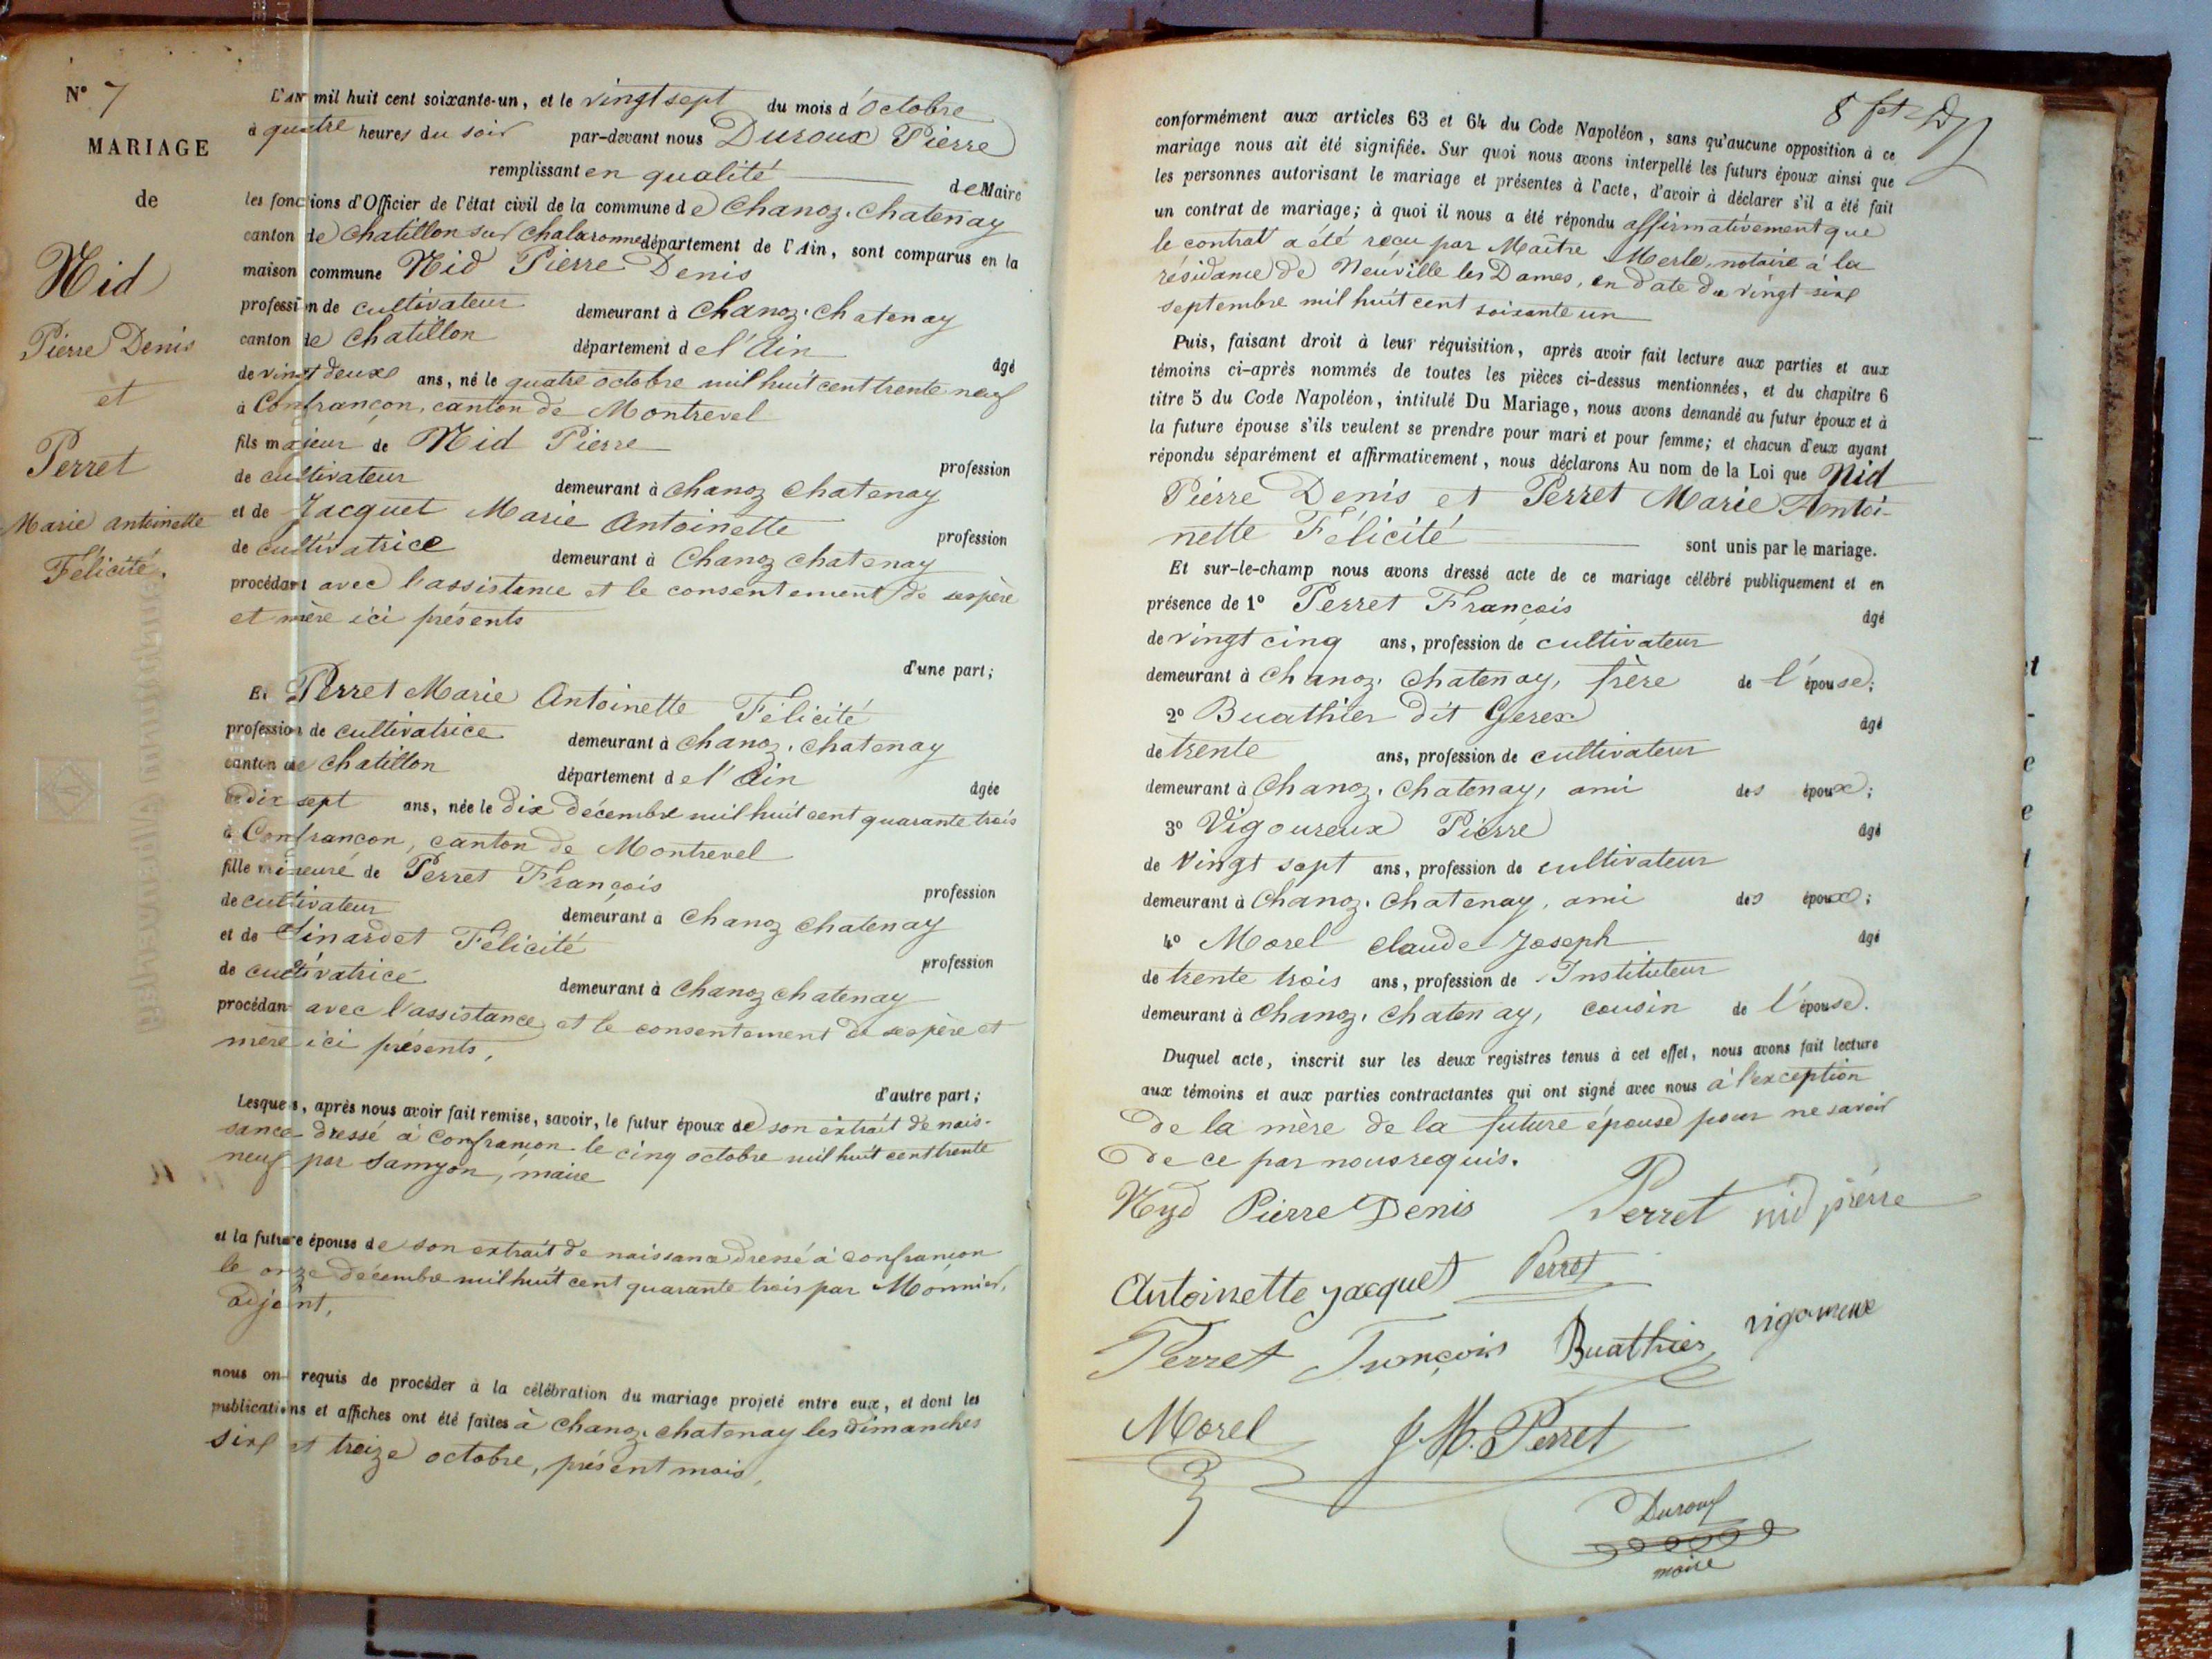 N° 7
MARIAGE
de
Nid
Pierre Denis
et
Perret
Marie antoinette
Félicité.
L'AN mil huit cent soixante-un, et le vingt sept du mois d'Octobre
à quatre heures du soir par-devant nous Duroux Pierre
remplissant en qualité de Maire
les fonctions d'Officier de l'état civil de la commune de Chanoz-Chatenay
canton de Chatillon sur Chalaronne département de l'Ain, sont comparus en la
maison commune Nid Pierre Denis
profession de cultivateur demeurant à Chanoz-Chatenay
canton de Chatillon département de l'Ain âgé
de vingt deux ans, né le quatre octobre mil huit cent trente neuf
à Confrançon, canton de Montrevel
fils majeur de Nid Pierre profession
de cultivateur demeurant à Chanoz Chatenay
et de Jacquet Marie Antoinette profession
de cultivatrice demeurant à Chanoz Chatenay
procédant avec l'assistance et le consentement de ses père
et mère ici présents
d'une part;
Et Perret Marie Antoinette Félicité
profession de cultivatrice demeurant à Chanoz-Chatenay
canton de Chatillon département de l'Ain âgée
de dix sept ans, née le dix décembre mil huit cent quarante trois
à Confrancon, canton de Montrevel
fille mineure de Perret François profession
de cultivateur demeurant à Chanoz Chatenay
et de Sinardet Félicité profession
de cultivatrice demeurant à Chanoz Chatenay
procédant avec l'assistance et le consentement de ses père et
mère ici présents,
d'autre part;
Lesquels, après nous avoir fait remise, savoir, le futur époux de son extrait de nais-
sance dressé à Confrançon le cinq octobre mil huit cent trente
neuf par Samyon, maire
et la future épouse de son extrait de naissance dressé à Confrançon
le onze décembre mil huit cent quarante trois par Monnier,
adjoint,
nous ont requis de procéder à la célébration du mariage projeté entre eux, et dont les
publications et affiches ont été faites à Chanoz-Chatenay les dimanches
six et treize octobre, présent mois,
8
conformément aux articles 63 et 64 du Code Napoléon, sans qu'aucune opposition à ce
mariage nous ait été signifiée. Sur quoi nous avons interpellé les futurs époux ainsi que
les personnes autorisant le mariage et présentes à l'acte, d'avoir à déclarer s'il a été fait
un contrat de mariage; à quoi il nous a été répondu affirmativement que
le contrat a été reçu par Maître Merle, notaire à la
résidance de Neuville les Dames, en date du vingt six
septembre mil huit cent soixante un
Puis, faisant droit à leur réquisition, après avoir fait lecture aux parties et aux
témoins ci-après nommés de toutes les pièces ci-dessus mentionnées, et du chapitre 6
titre 5 du Code Napoléon, intitulé Du Mariage, nous avons demandé au futur époux et à
la future épouse s'ils veulent se prendre pour mari et pour femme; et chacun d'eux ayant
répondu séparément et affirmativement, nous déclarons Au nom de la Loi que Nid
Pierre Denis et Perret Marie Antoi-
nette Félicité sont unis par le mariage.
Et sur-le-champ nous avons dressé acte de ce mariage célébré publiquement et en
présence de 1° Perret François âgé
de vingt cinq ans, profession de cultivateur
demeurant à Chanoz-Chatenay, frère de l'épouse;
2° Buathier dit Gerex âgé
de trente ans, profession de cultivateur
demeurant à Chanoz-Chatenay, ami des époux;
3° Vigoureux Pierre âgé
de vingt sept ans, profession de cultivateur
demeurant à Chanoz-Chatenay, ami des époux;
4° Morel Claude Joseph âgé
de trente trois ans, profession de Instituteur
demeurant à Chanoz-Chatenay, cousin de l'épouse.
Duquel acte, inscrit sur les deux registres tenus à cet effet, nous avons fait lecture
aux témoins et aux parties contractantes qui ont signé avec nous à l'exception
de la mère de la future épouse pour ne savoir
de ce par nous requis.
Nyd Pierre Denis Perret nid pierre
Antoinette jacquet Perret
Perret François Buathier vigoureux
Morel J. M. Perret
Duroux
maire